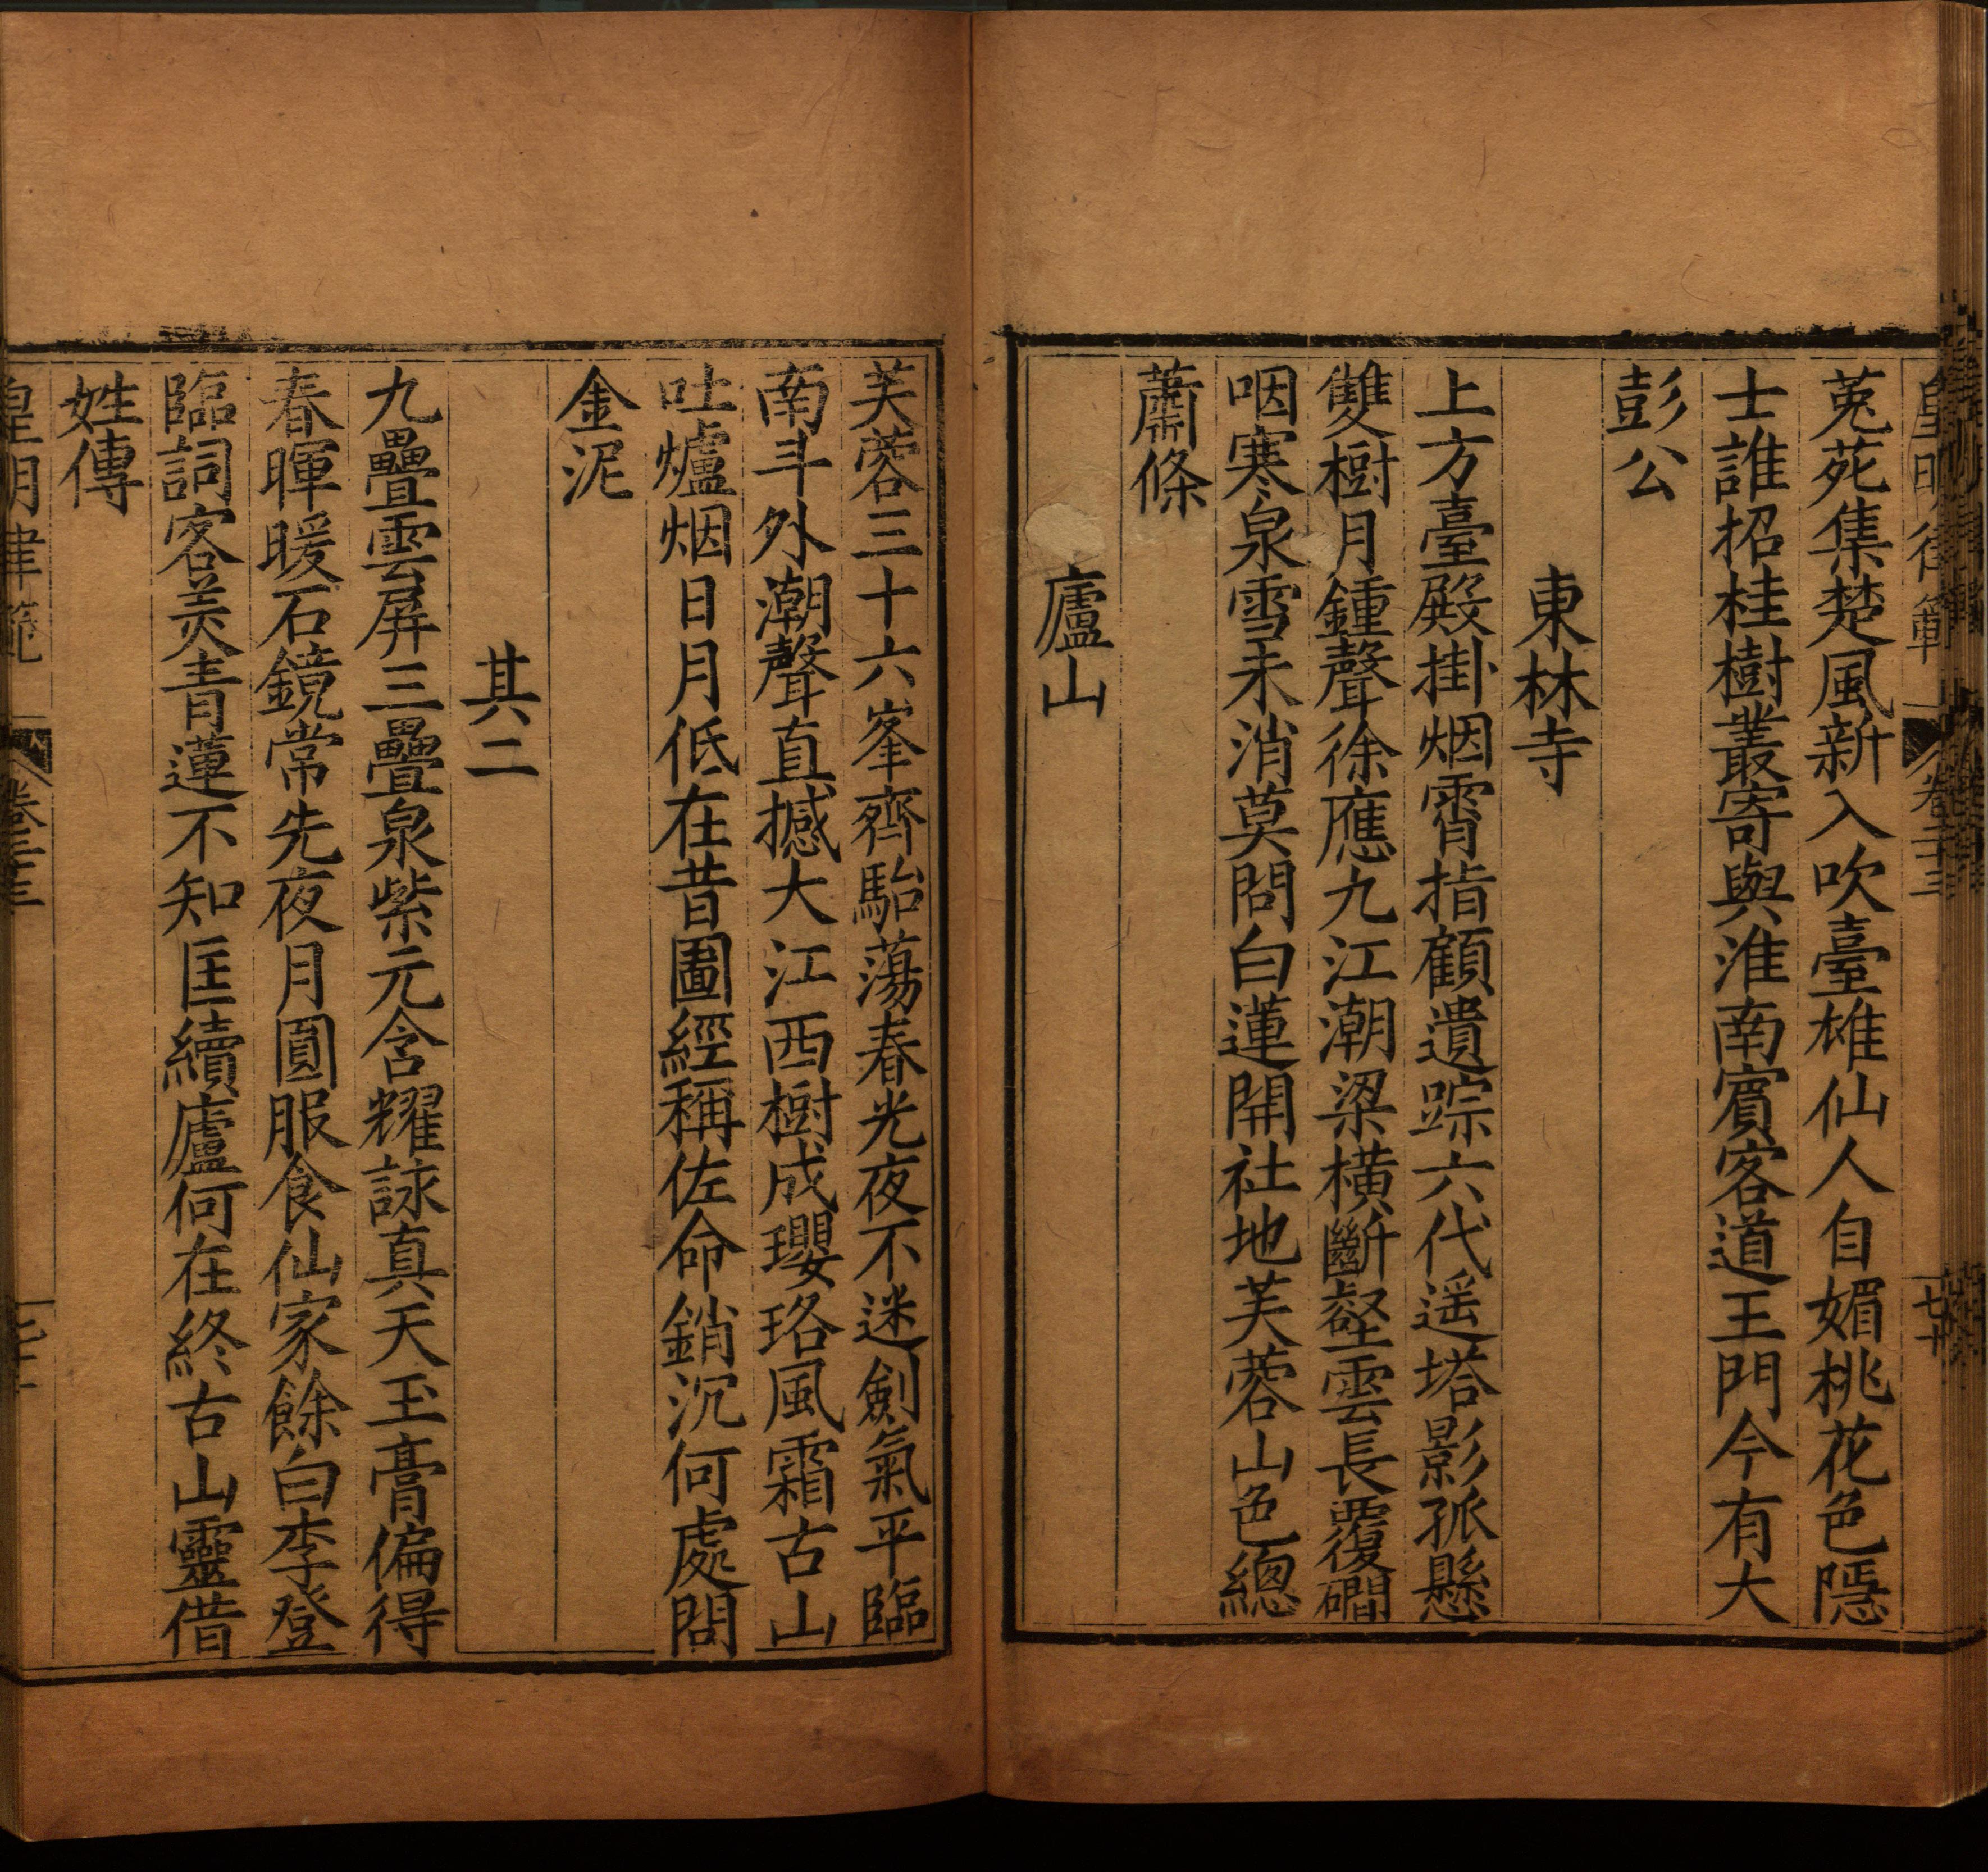 菟苑集楚風新入吹臺雄仙人自媚桃花色隱
士誰招桂樹叢寄與淮南賓客道王門今有大
彭公
東林寺
上方臺殿掛烟霄指顧遺踪六代遥塔影孤懸
雙樹月鍾聲徐應九江潮梁橫斷壑雲長覆磵
咽寒泉雪未消莫問白蓮開社地芙蓉山色總
蕭條
廬山
芙蓉三十六峯齊駘蕩春光夜不迷劍氣平臨
南斗外潮聲直撼大江西樹成瓔珞風霜古山
吐爐烟日月低在昔圖經稱佐命銷沉何處問
金泥
其二
九疊雲屏三疊泉紫元含耀詠真天玉膏偏得
春暉暖石鏡常先夜月圓服食仙家餘白李登
臨詞客羙青蓮不知匡續廬何在終古山靈借
姓傳
皇明律範 卷二十三